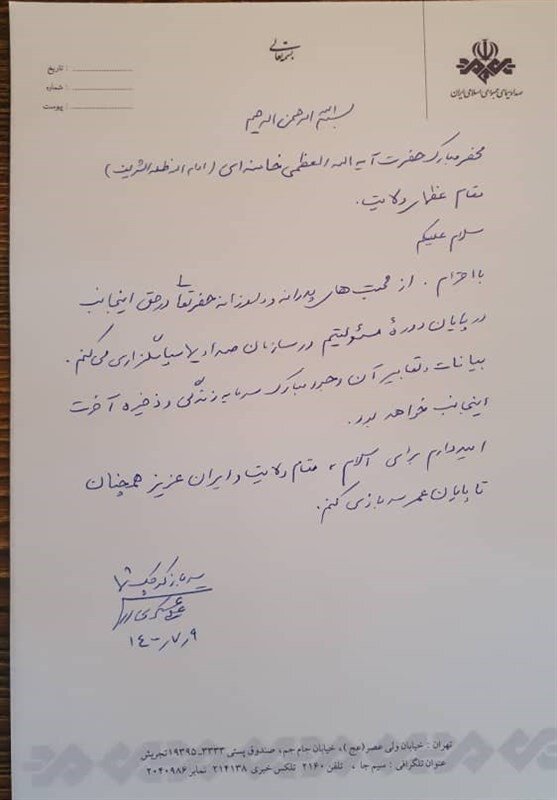 بسمه‌تعالی
صدا و سیمای جمهوری اسلامی ایران
تاریخ :
شماره :
پیوست :
بسم الله الرحمن الرحیم
محضر مبارک حضرت آیه الله العظمی خامنه‌ای (ادام الله ظله الشریف)
مقام عظمای ولایت.
سلام علیکم
با احترام. از محبت‌های پدرانه و دلسوزانه حضرتعالی در حق اینجانب
در پایان دورهٔ مسئولیتم در سازمان صدا و سیما سپاسگزاری می‌کنم.
بیانات و تعابیر آن وجود مبارک سرمایه زندگی و ذخیره آخرت
اینجانب خواهد بود.
امیدوارم برای اسلام، مقام ولایت و ایران عزیز همچنان
تا پایان عمر سربازی کنم.
سرباز کوچک شما
علی عسکری
۱۴۰۰٫۷٫۹
تهران : خیابان ولی عصر (عج)، خیابان جام جم، صندوق پستی ۳۳۳۳-۱۹۳۹۵ تجریش
عنوان تلگرافی : سیم جا ، تلفن ۲۱۶۰ تلکس خبری ۲۱۴۱۳۸ نمابر ۲۰۴۰۹۸۶